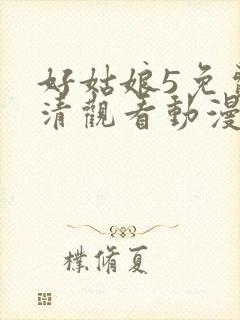 好姑娘5免
清觀看動漫
樸脩夏